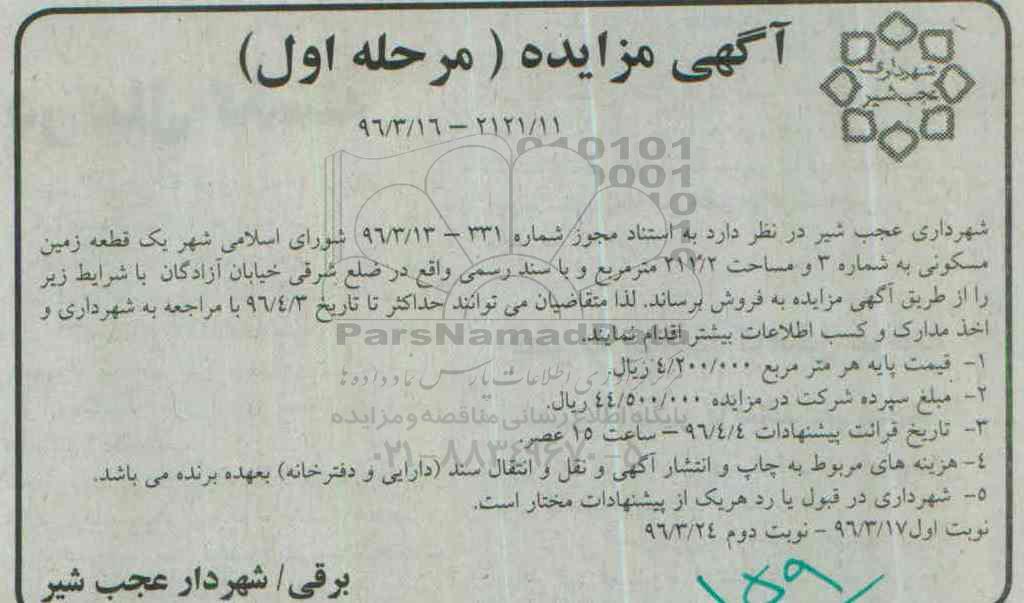 آگهی مزایده ( مرحله اول)
شهرداری
عجب شیر
۲۱۲۱/۱۱ – ۹٦/۳/۱٦
شهرداری عجب شیر در نظر دارد به استناد مجوز شماره ۳۳۱ – ۹٦/۳/۱۳ شورای اسلامی شهر یک قطعه زمین
مسکونی به شماره ۳ و مساحت ۲۱۱/۲ مترمربع و با سند رسمی واقع در ضلع شرقی خیابان آزادگان با شرایط زیر
را از طریق آگهی مزایده به فروش برساند. لذا متقاضیان می توانند حداکثر تا تاریخ ۹٦/٤/۳ با مراجعه به شهرداری و
اخذ مدارک و کسب اطلاعات بیشتر اقدام نمایند.
۱- قیمت پایه هر متر مربع ٤/۲۰۰/۰۰۰ ریال.
۲- مبلغ سپرده شرکت در مزایده ٤٤/۵۰۰/۰۰۰ ریال.
۳- تاریخ قرائت پیشنهادات ۹٦/٤/٤ – ساعت ۱۵ عصر.
٤- هزینه های مربوط به چاپ و انتشار آگهی و نقل و انتقال سند (دارایی و دفترخانه) بعهده برنده می باشد.
۵- شهرداری در قبول یا رد هریک از پیشنهادات مختار است.
نوبت اول۹٦/۳/۱۷ – نوبت دوم ۹٦/۳/۲٤
برقی/ شهردار عجب شیر
ParsNamadData.com
مرکز فرآوری اطلاعات پارس نماد داده ها
پایگاه اطلاع رسانی مناقصه و مزایده
۰۲۱-۸۸۳٤۹٦۷۰-۵